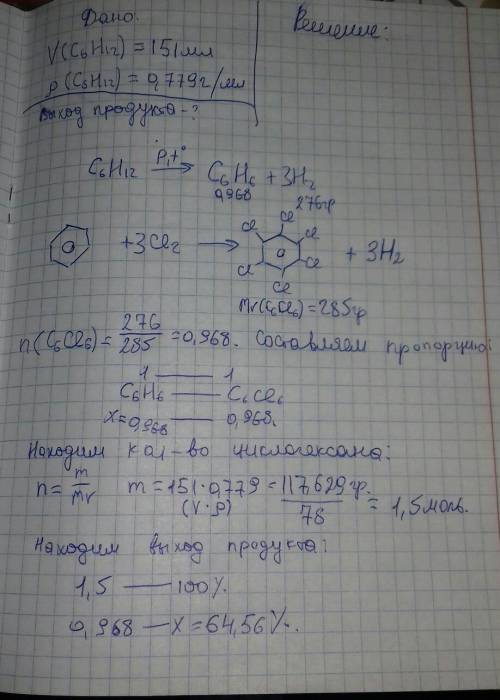 Дано:
Решение:
V(C6H12) = 151 мл
ρ(C6H12) = 0,779 г/мл
Выход продукта - ?
C6H12 P,t° → C6H6 + 3H2
0,968
276гр
+ 3Cl2 → Cl Cl Cl Cl Cl Cl + 3H2
Mr(C6Cl6) = 285гр
n(C6Cl6) = 276/285 = 0,968. Составляем пропорцию:
1 — 1
C6H6 — C6Cl6
X=0,968 — 0,968.
Находим кол-во циклогексана:
n = m/Mr m = 151·0,779 = 117,629 гр. / 78 = 1,5 моль.
(V·ρ)
Находим выход продукта:
1,5 — 100%.
0,968 — X = 64,56%.